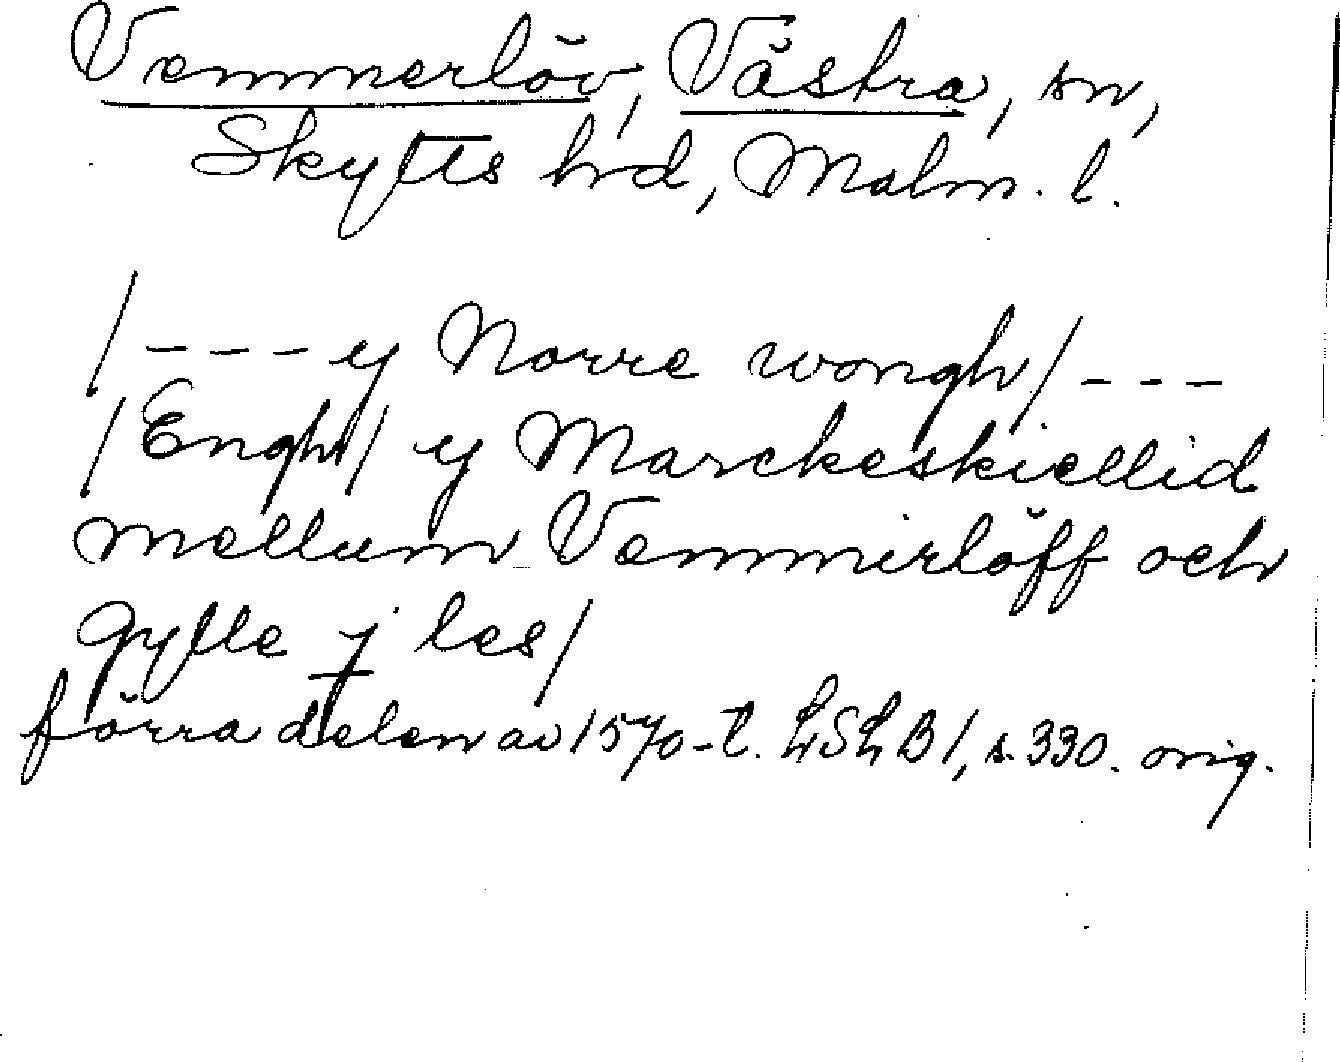 Vemmerlöv, Västra, sn,
Skytts hd, Malm. l.
/--- y Norre wongh/ ---
/Engh/ y Marckeskiellid
mellum Vemmirlöff och
Gylle j les/
förra delen av 1570-t. LSLB1, s. 330. orig.